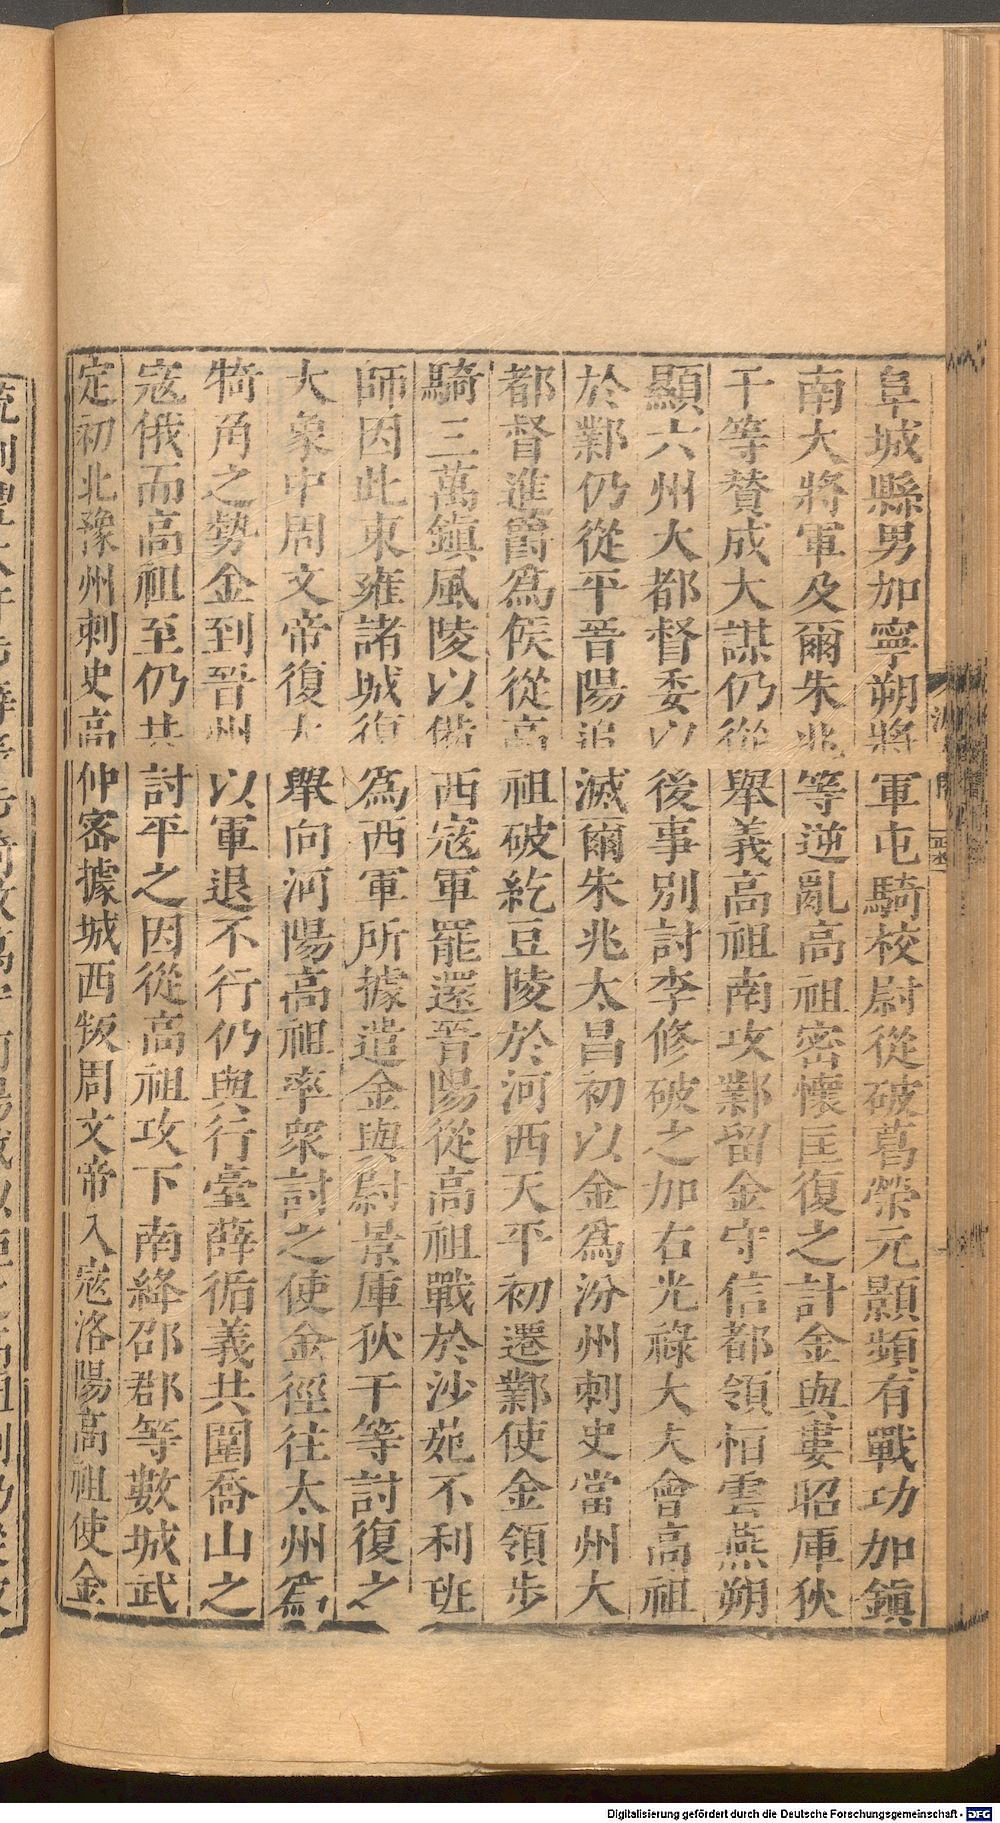 阜城縣男加寧朔將軍屯騎校尉從破葛榮元顥頻有戰功加鎮
南大將軍及爾朱兆等逆亂高祖密懷匡復之計金與婁昭厙狄
干等賛成大謀仍從舉義高祖南攻鄴留金守信都領恒雲燕朔
顯六州大都督委以後事別討李修破之加右光祿大夫會高祖
於鄴仍從平晉陽追滅爾朱兆太昌初以金為汾州刺史當州大
都督進爵為侯從高祖破紇豆陵於河西天平初遷鄴使金領步
騎三萬鎮風陵以備西寇軍罷還晉陽從高祖戰於沙苑不利班
師因此東雍諸城復為西軍所據遣金與尉景厙狄干等討復之
大象中周文帝復大舉向河陽高祖率眾討之使金徑往太州為
犄角之勢金到晉州以軍退不行仍與行臺薛循義共圍喬山之
寇俄而高祖至仍共討平之因從高祖攻下南絳邵郡等數城武
定初北豫州刺史高仲密據城西叛周文帝入寇洛陽高祖使金
Digitalisierung gefördert durch die Deutsche Forschungsgemeinschaft - DFG